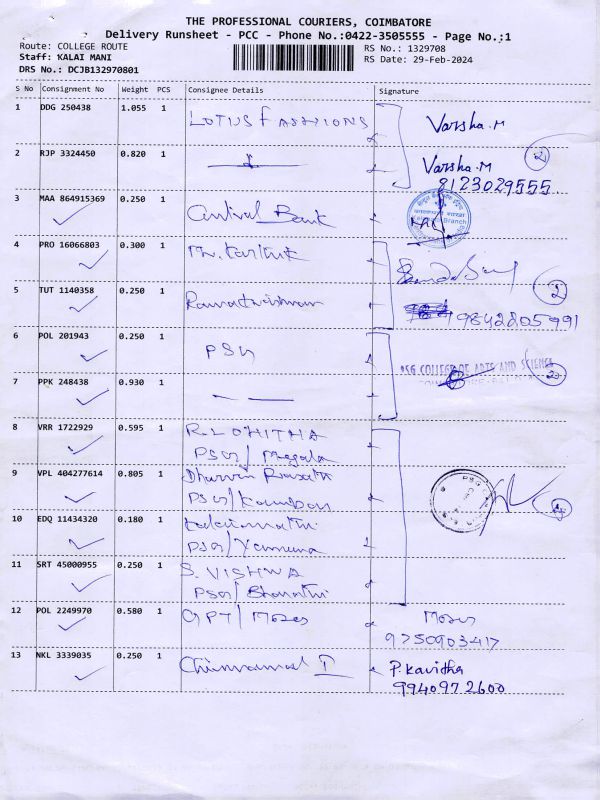 THE PROFESSIONAL COURIERS, COIMBATORE
Delivery Runsheet - PCC - Phone No.:0422-3505555 - Page No.:1
Route: COLLEGE ROUTE
RS No.: 1329708
Staff: KALAI MANI
RS Date: 29-Feb-2024
DRS No.: DCJB132970801
S No Consignment No Weight PCS Consignee Details Signature
1 DDG 250438 1.055 1 LOTUS FASHIONS Varsha.M
2 RJP 3324450 0.820 1 Varsha.M 2
8123029555
3 MAA 864915369 0.250 1 Bank
4 PRO 16066803 0.300 1
5 TUT 1140358 0.250 1 2
9842805991
6 POL 201943 0.250 1 PSG
PSG COLLEGE OF ARTS AND SCIENCE
7 PPK 248438 0.930 1
8 VRR 1722929 0.595 1 R. LOHITHA
PSG/Megala
9 VPL 404277614 0.805 1
PSG/
10 EDQ 11434320 0.180 1
PSG/Yamuna
11 SRT 45000955 0.250 1 S. VISHWA
PSG/Bharathi
12 POL 2249970 0.580 1 GPT/Moses Moses
9750903417
13 NKL 3339035 0.250 1 P. Kavitha
9940972600